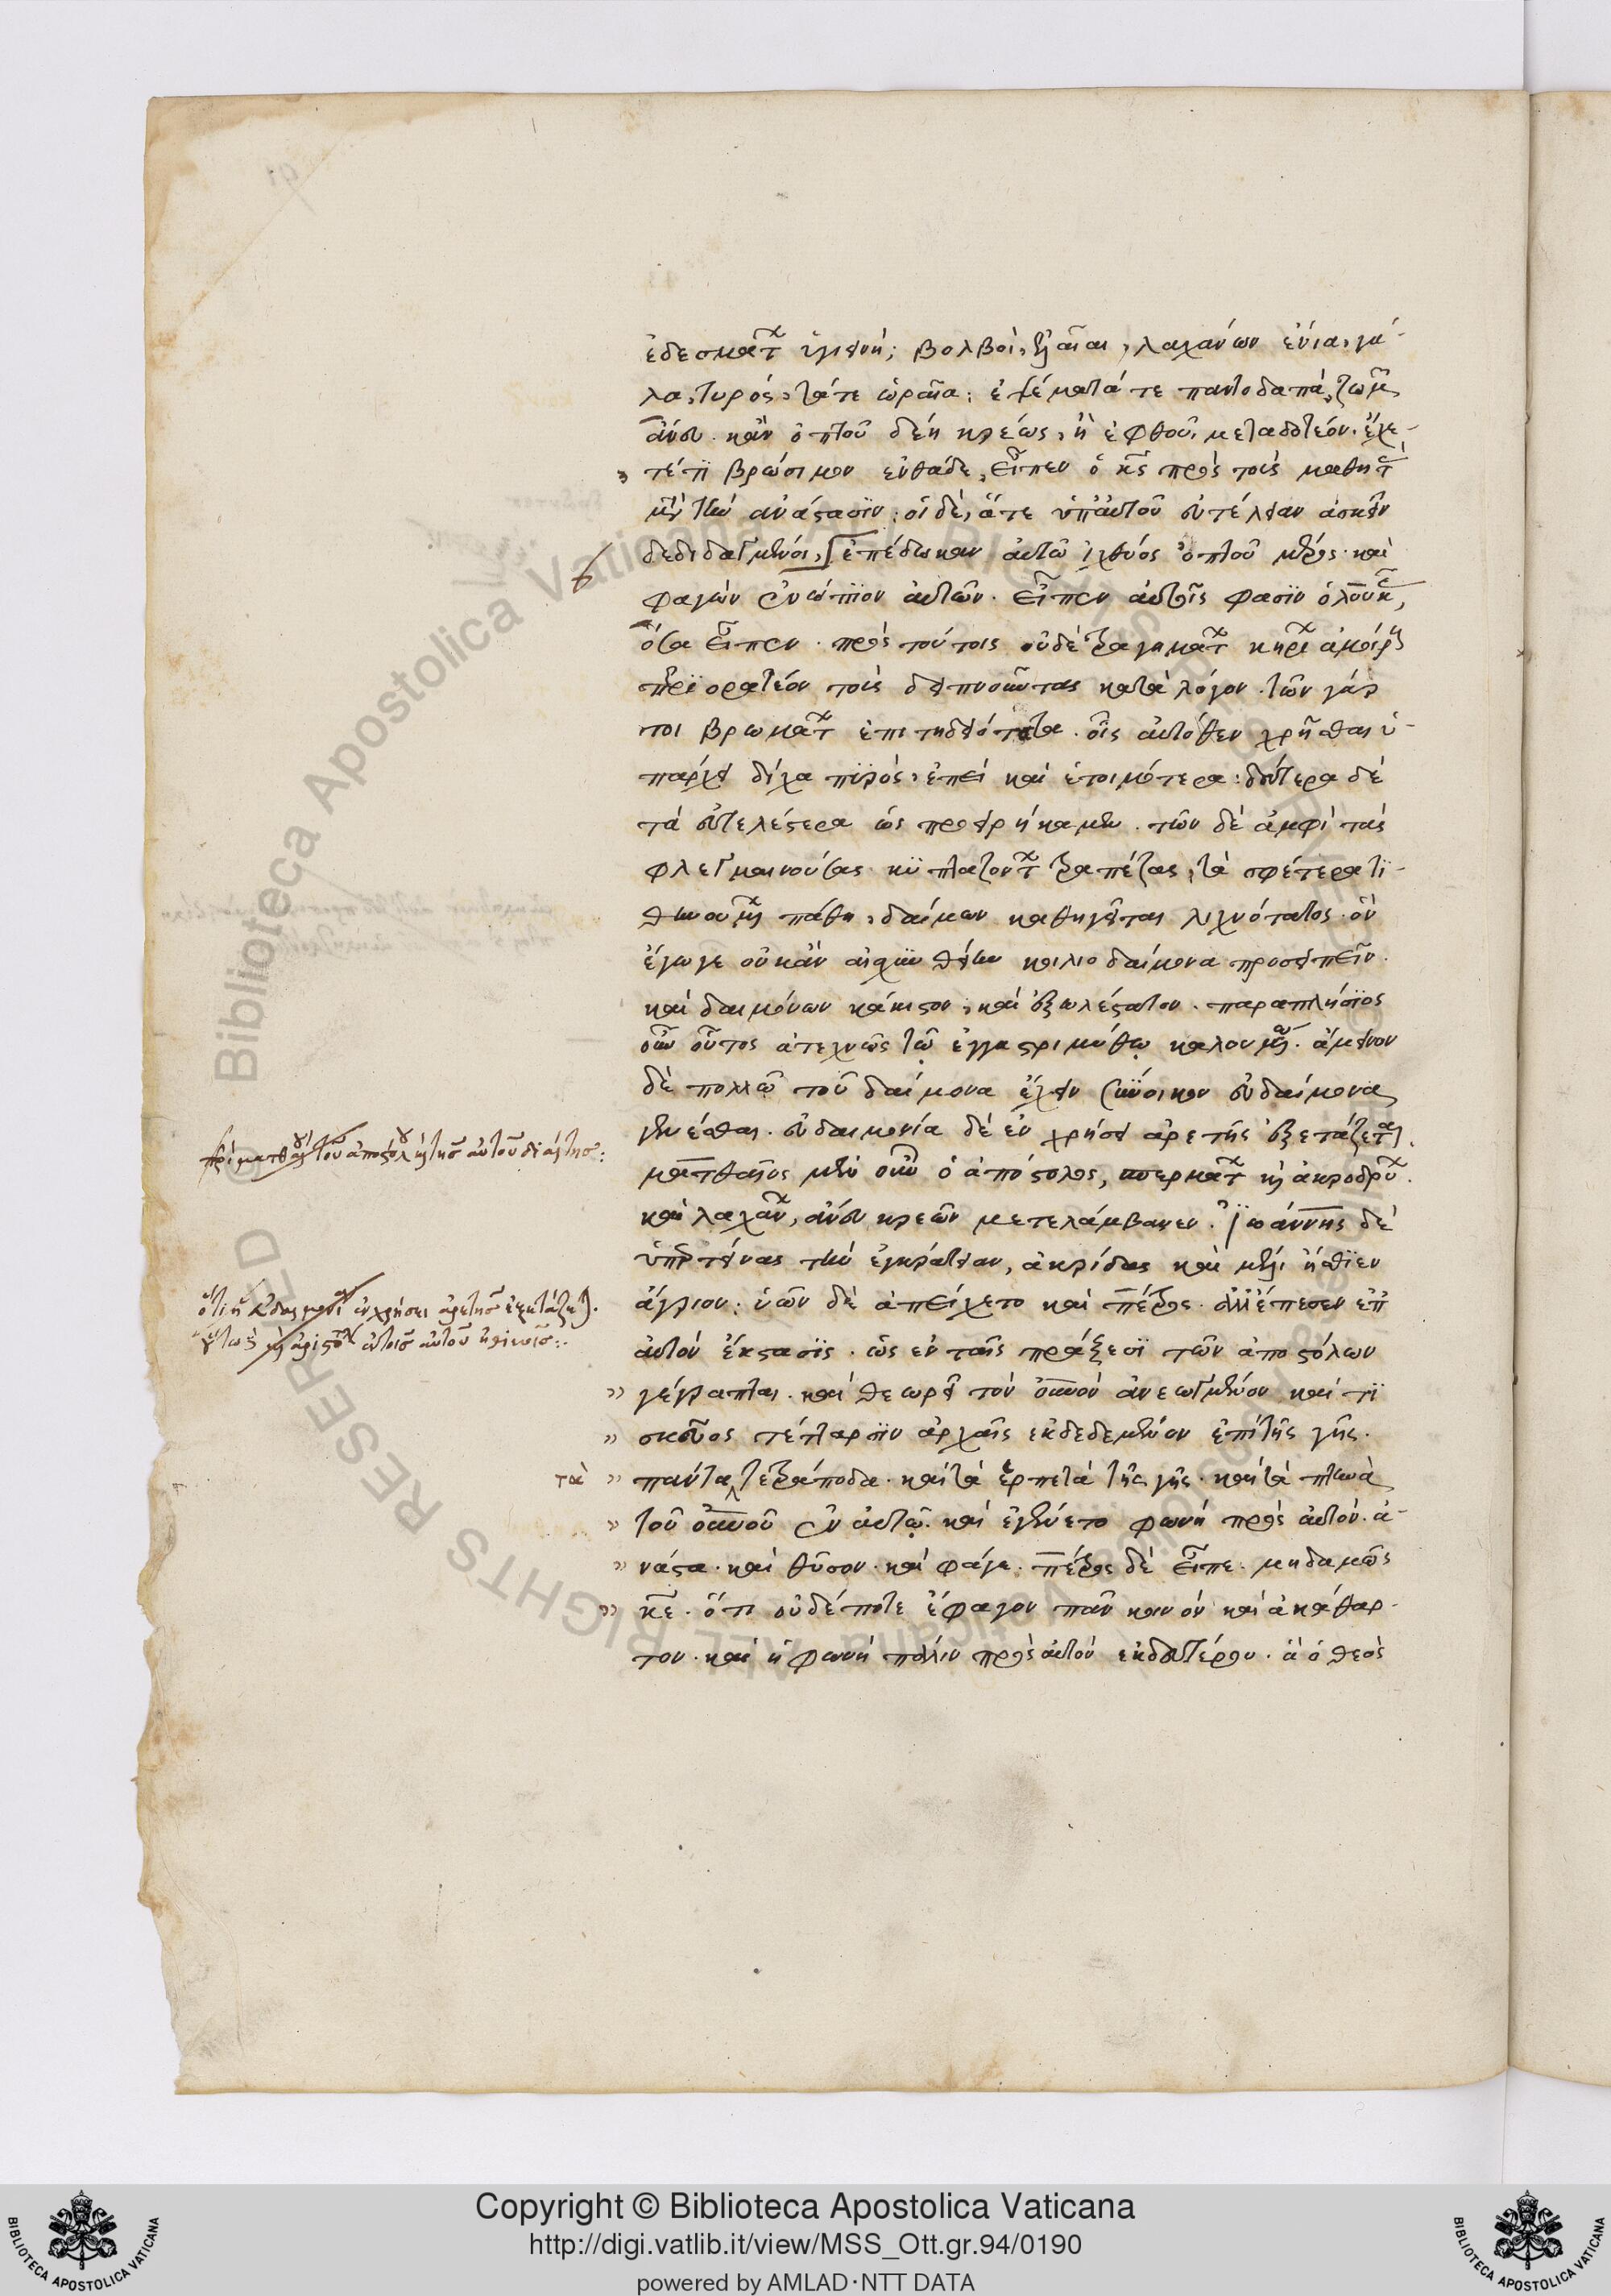 ἐδεσμάτ ὑγιεινή; βολβοὶ, ἐλαῖαι, λαχάνων ἔνια, γά-
λα, τυρός, τάτε ὡραῖα; ἑψέματά τε παντοδαπὰ, ζωμ
ἄνευ. κἂν ὀπτοῦ δέῃ κρέως, ἢ ἑφθοῦ, μεταδοτέον. ἔχε-
τέ τι βρώσιμον ἐνθάδε, εἶπεν ὁ κς πρὸς τοὺς μαθητ
μετὰ τὴν ἀνάστασιν; οἱ δὲ, ἅτε ὑπ' αὐτοῦ εὐτέλειαν ἀσκεῖν
δεδιδαγμένοι, ἐπέδωκαν αὐτῷ ἰχθύος ὀπτοῦ μέρος. καὶ
φαγὼν ἐνώπιον αὐτῶν. εἶπεν αὐτοῖς φασὶν ὁ λουκ,
ὅσα εἶπεν. πρὸς τούτοις οὐδὲ τραγημάτ κηρί ἀμοίρ
περιορατέον τοὺς δειπνοῦντας κατὰ λόγον. τῶν γάρ
τοι βρωμάτ ἐπιτηδειότατα. οἷς αὐτόθεν χρῆσθαι ὑ-
πάρχει δίχα πυρός, ἐπεὶ καὶ ἑτοιμότερα; δεύτερα δὲ
τὰ εὐτελέστερα ὡς προειρήκαμεν. τῶν δὲ ἀμφὶ τὰς
φλεγμαινούσας κυπταζοντ τραπέζας, τὰ σφέτερα τι-
θηνουμ πάθη, δαίμων καθηγεῖται λιχνότατος. ὃν
ἔγωγε οὐκ ἂν αἰσχυνθείην κοιλιοδαίμονα προσειπεῖν.
καὶ δαιμόνων κάκιστον, καὶ ἐξωλέστατον. παραπλήσιος
οὖν οὗτος ἀτεχνῶς τῷ ἐγγαστριμύθῳ καλουμ. ἄμεινον
δὲ πολλῷ τοῦ δαίμονα ἔχειν σύνοικον εὐδαίμονα
γενέσθαι. εὐδαιμονία δὲ ἐν χρήσει ἀρετῆς ἐξετάζεται.
ματθαῖος μὲν οὖν ὁ ἀπόστολος, σπερμάτ κ ἀκροδρύ.
καὶ λαχάν, ἄνευ κρεῶν μετελάμβανεν. ἰωάννης δὲ
ὑπερτείνας τὴν ἐγκράτειαν, ἀκρίδας καὶ μέλι ἤσθιεν
ἄγριον; ὑῶν δὲ ἀπείχετο καὶ πέτρος. ἀλλ' ἔπεσεν ἐπ'
αὐτὸν ἔκστασις. ὡς ἐν ταῖς πράξεσι τῶν ἀποστόλων
γέγραπται. καὶ θεωρεῖ τὸν οὐνὸν ἀνεωγμένον καί τι
σκεῦος τέτταρσιν ἀρχαῖς ἐκδεδεμένον ἐπὶ τῆς γῆς.
τὰ πάντα τετράποδα. καὶ τὰ ἑρπετὰ τῆς γῆς. καὶ τὰ πτηνὰ
τοῦ οὐνοῦ ἐν αὐτῷ. καὶ ἐγένετο φωνὴ πρὸς αὐτόν. ἀ-
νάστα. καὶ θῦσον. καὶ φάγε. πέτρος δὲ εἶπε. μηδαμῶς
κε. ὅτι οὐδέποτε ἔφαγον πᾶν κοινὸν καὶ ἀκάθαρ-
τον. καὶ ἡ φωνὴ πάλιν πρὸς αὐτὸν ἐκ δευτέρου. ἃ ὁ θεὸς
Copyright © Biblioteca Apostolica Vaticana
http://digi.vatlib.it/view/MSS_Ott.gr.94/0190
powered by AMLAD·NTT DATA
BIBLIOTECA APOSTOLICA VATICANA
BIBLIOTECA APOSTOLICA VATICANA